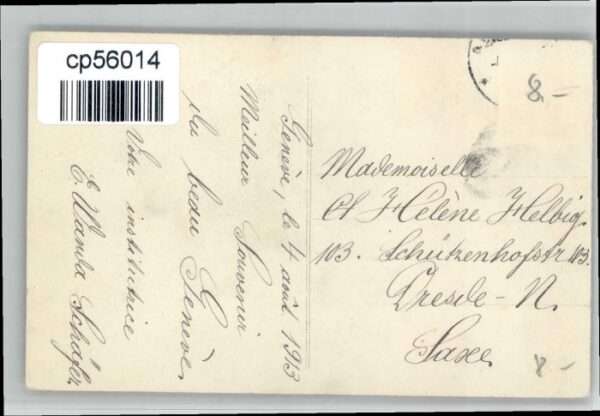 cp56014
8.-
Genève, le 4 août 1913
Meilleur Souvenir
du beau Genève.
Votre institutrice
E. Wanda Schäfer
Mademoiselle
Hélène Helbig.
103. Schützenhofstr 103.
Dresde-N.
Saxe
8-